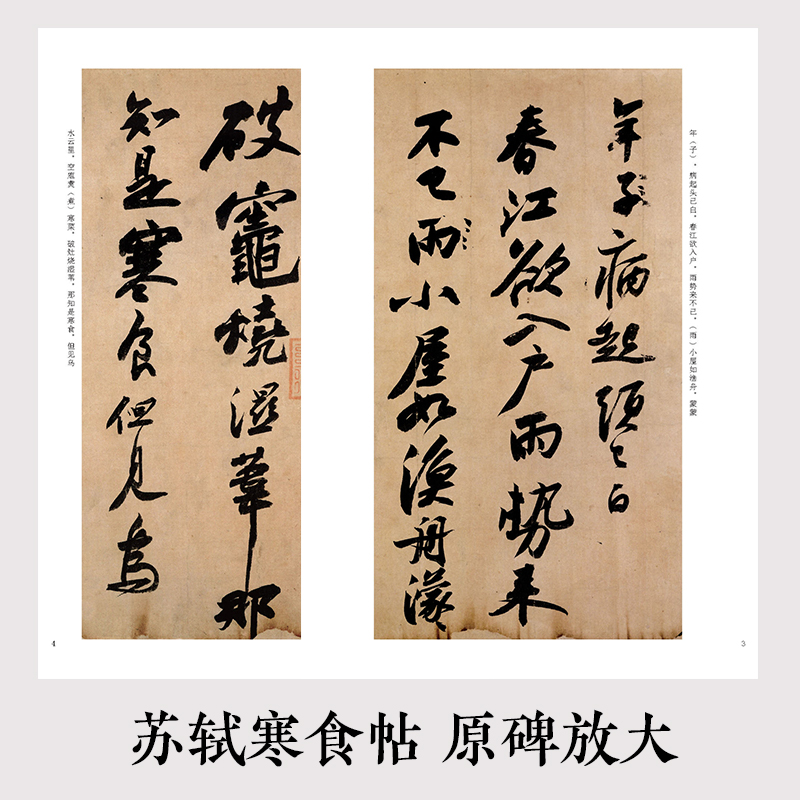 年（子），病起头已白。春江欲入户，雨势来不已。（雨）小屋如渔舟，蒙蒙
年子病起頭已白
春江欲入户雨勢来
不已雨小屋如漁舟濛〻
3
破竈燒濕葦那
知是寒食但見烏
水云里。空庖煑（煮）寒菜，破灶烧湿苇。那知是寒食，但见乌
4
苏轼寒食帖 原碑放大